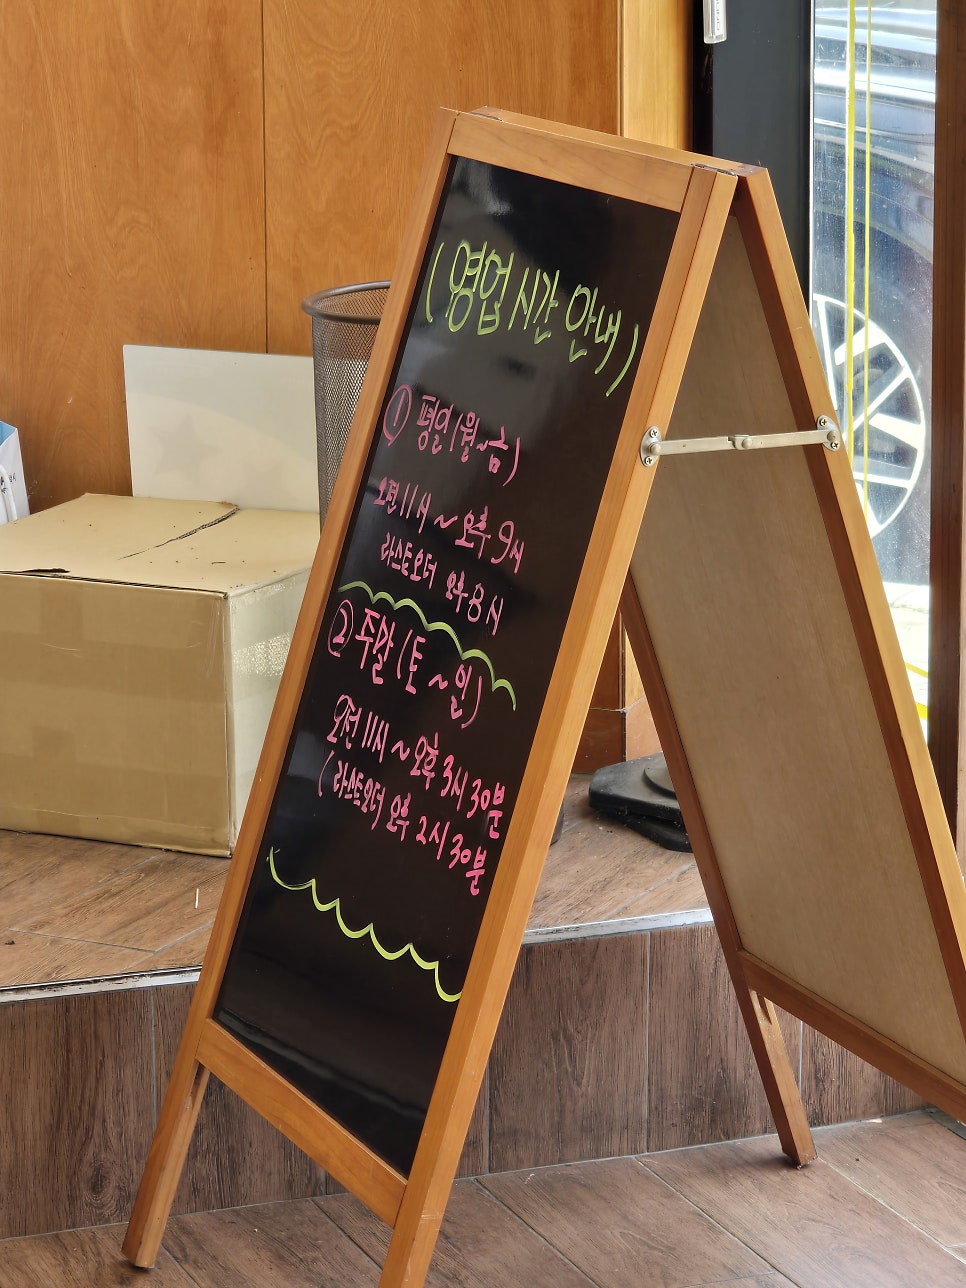 (영업시간 안내)
① 평일(월~금)
오전 11시 ~ 오후 9시
라스트오더 오후 8시
② 주말 (토 ~ 일)
오전 11시 ~ 오후 3시 30분
(라스트오더 오후 2시 30분